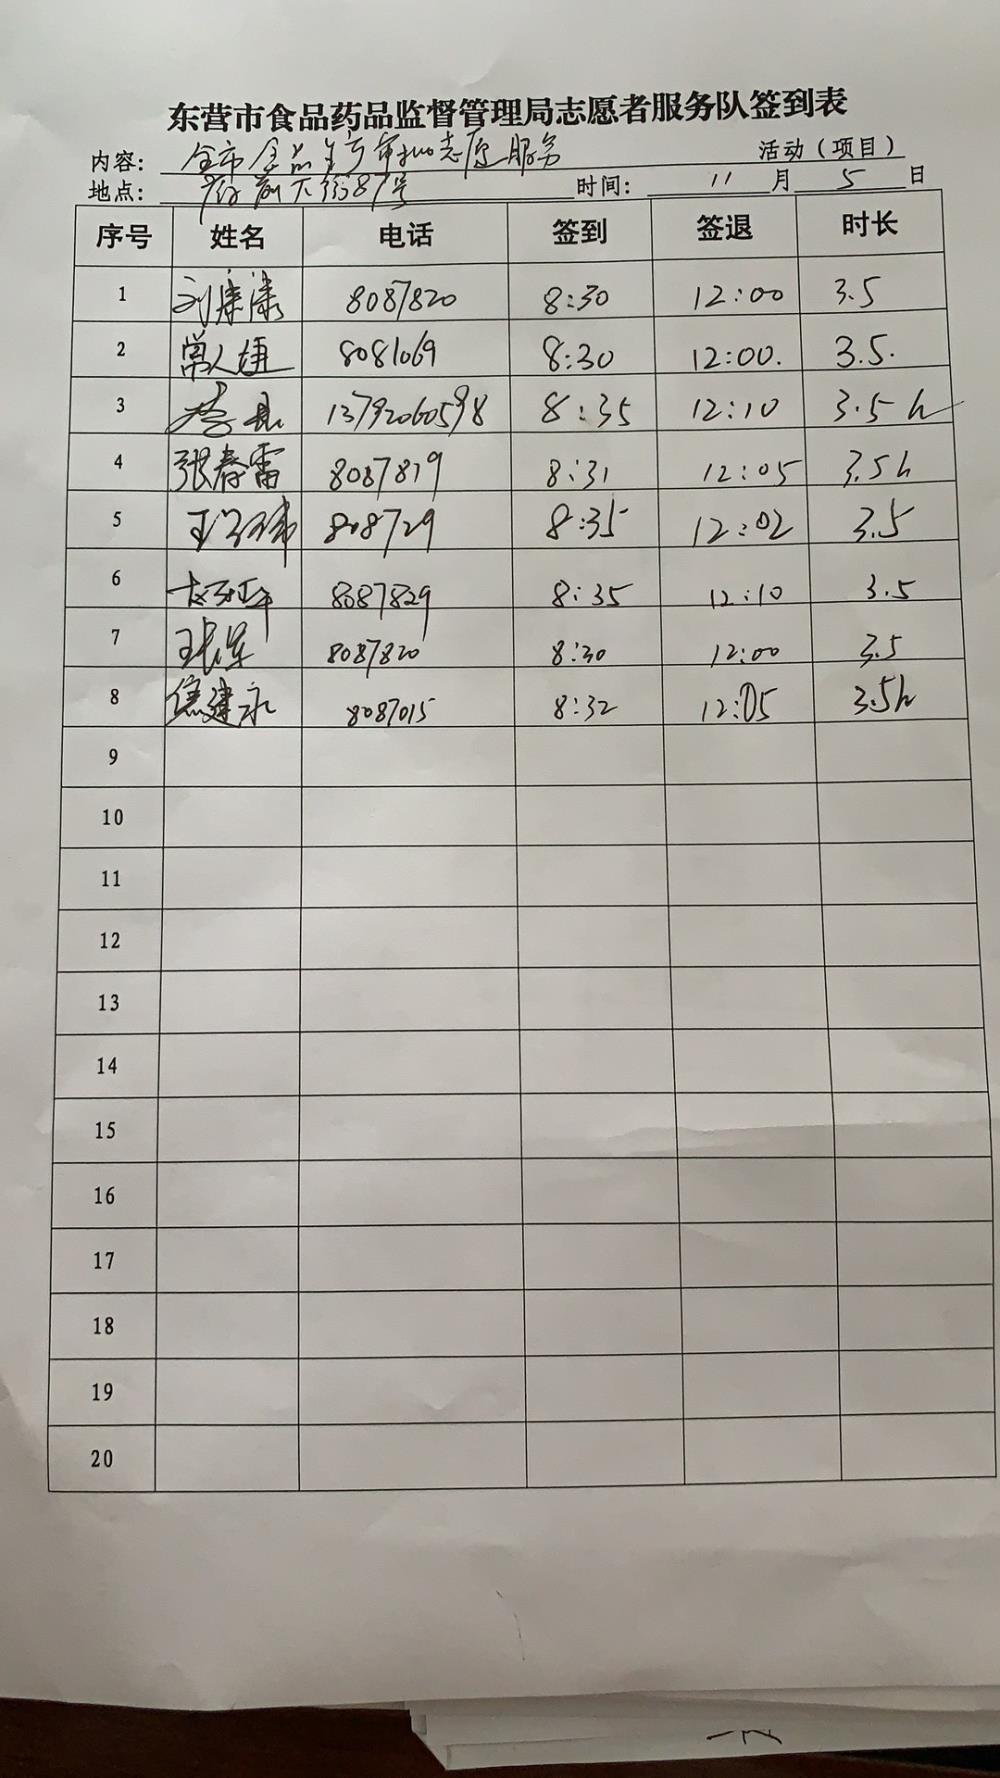 东营市食品药品监督管理局志愿者服务队签到表
内容: 全市食品生产 志愿服务 活动（项目）
地点: 府前大街87号 时间: 11月5日
序号 姓名 电话 签到 签退 时长
1 刘康康 8087820 8:30 12:00 3.5
2 常人婕 8081069 8:30 12:00. 3.5.
3 13792060598 8:35 12:10 3.5h
4 张春雷 8087819 8:31 12:05 3.5h
5 808729 8:35 12:02 3.5
6 8087829 8:35 12:10 3.5
7 8087820 8:30 12:00 3.5
8 焦建永 8087015 8:32 12:05 3.5h
9
10
11
12
13
14
15
16
17
18
19
20